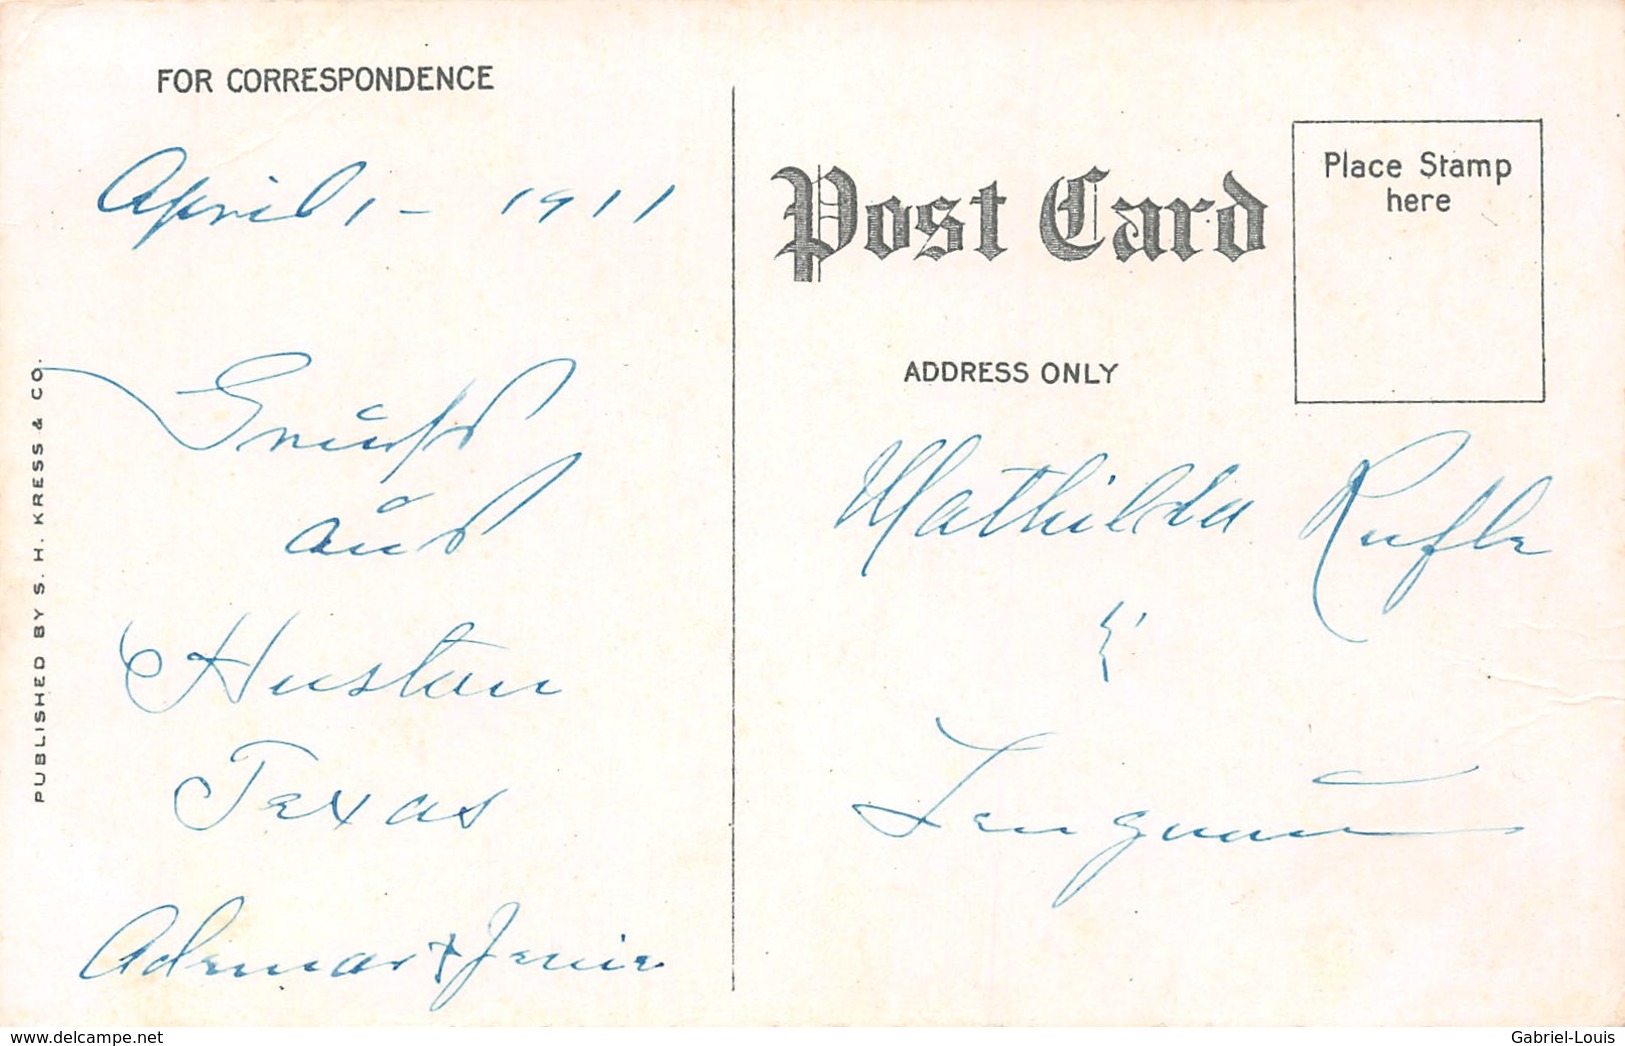 FOR CORRESPONDENCE
April 1 - 1911
Gruß
aus
Hustan
Texas
Ademar & Jenie
PUBLISHED BY S. H. KRESS & CO.
Post Card
Place Stamp
here
ADDRESS ONLY
Mathilda Rufle
Lengnau
www.delcampe.net
Gabriel-Louis